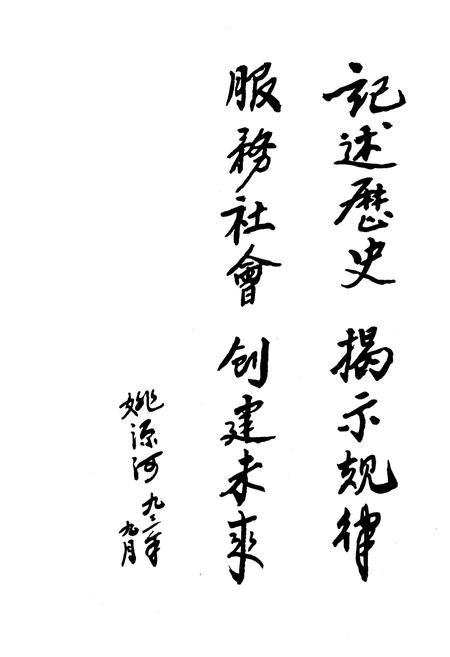 記述歷史 揭示規律
服務社會 创建未來
姚源河 九二年
九月